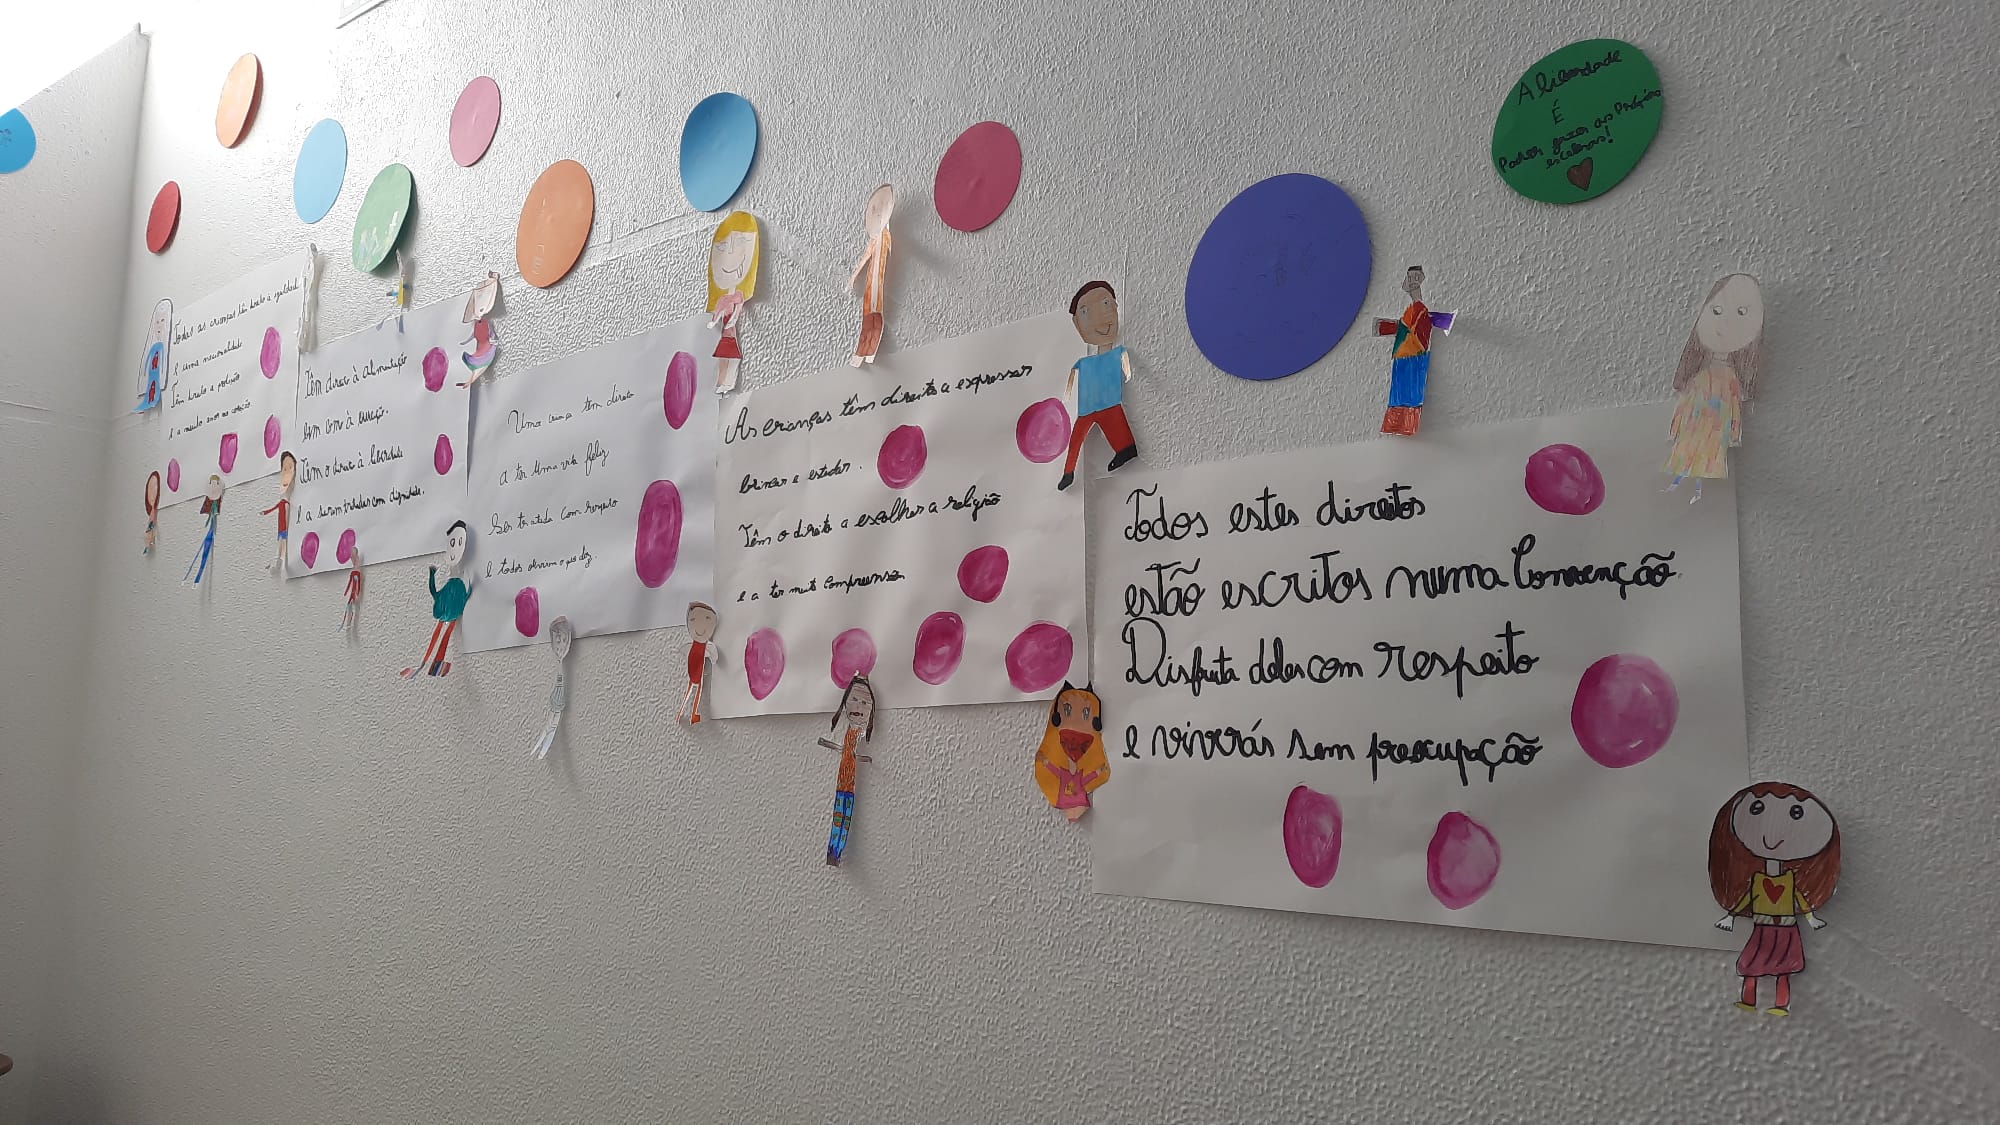 Todas as crianças têm direito à igualdade
e uma nacionalidade
Têm direito a proteção
e a muito amor no coração
Têm direito à alimentação
bem com à
Têm o direito à liberdade
e a serem tratadas com dignidade.
Uma criança tem direito
a ter uma vida feliz
Ser tratada com respeito
e todos ouvirem o que diz.
As crianças têm direito a expressar
brincar e estudar.
Têm o direito a escolher a religião
e a ter muita compreensão
Todos estes direitos
estão escritos numa Convenção.
Disfruta deles com respeito
e viverás sem preocupação
A liberdade
É
Poder fazer as Próprias
escolhas!